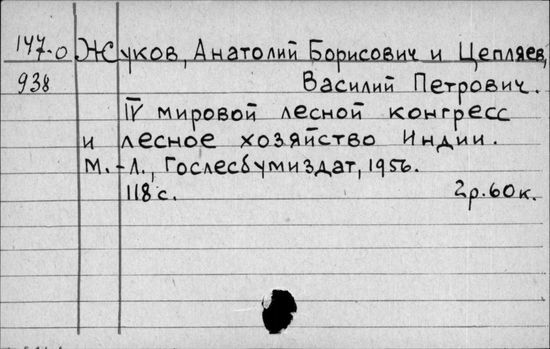 147-0 Жуков, Анатолий Борисович и Цепляев,
938 Василий Петрович.
IV мировой лесной конгресс
и лесное хозяйство Индии.
М.-Л., Гослесбумиздат, 1956.
118 с. 2р.60к.